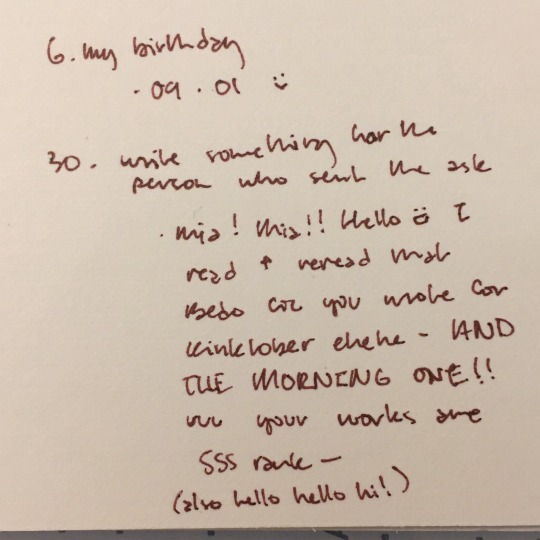 6. my birthday
· 09 . 01 :)
30. write something for the
person who sent the ask
· mia! mia!! Hello :D I
read + reread that
Bedo fic you wrote for
kinktober ehehe - AND
THE MORNING ONE!!
your works are
SSS rank —
(also hello hello hi!)